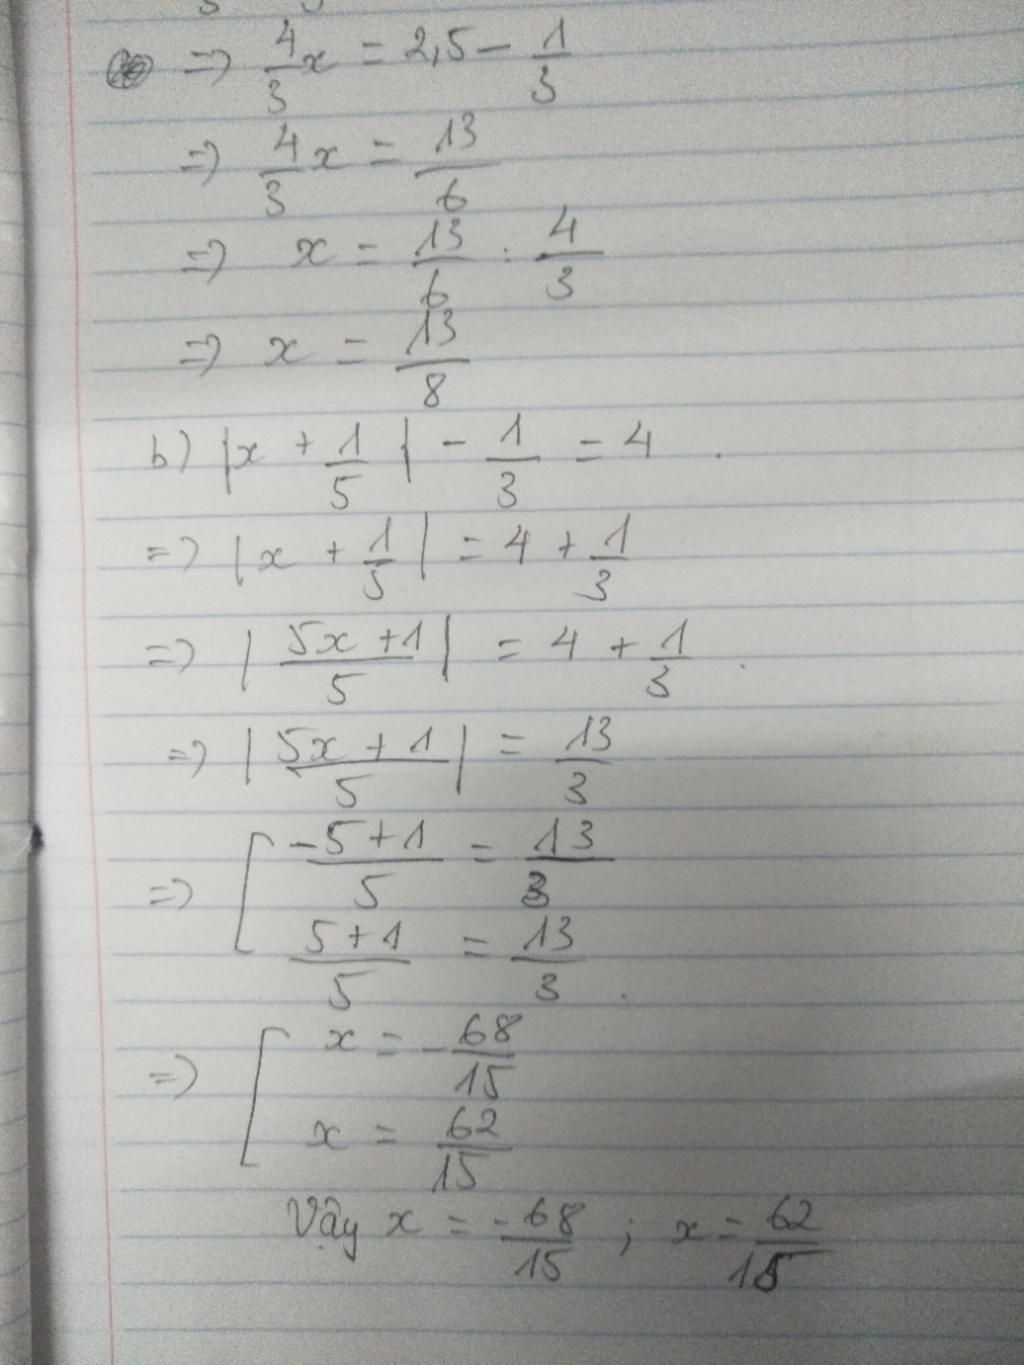 => 4/3 x = 2,5 - 1/3
=> 4/3 x = 13/6
=> x = 13/6 : 4/3
=> x = 13/8
b) |x + 1/5| - 1/3 = 4
=> |x + 1/5| = 4 + 1/3
=> |(5x+1)/5| = 4 + 1/3
=> |(5x+1)/5| = 13/3
=> [ (-5+1)/5 = 13/3
(5+1)/5 = 13/3
=> [ x = -68/15
x = 62/15
Vậy x = -68/15 ; x = 62/15